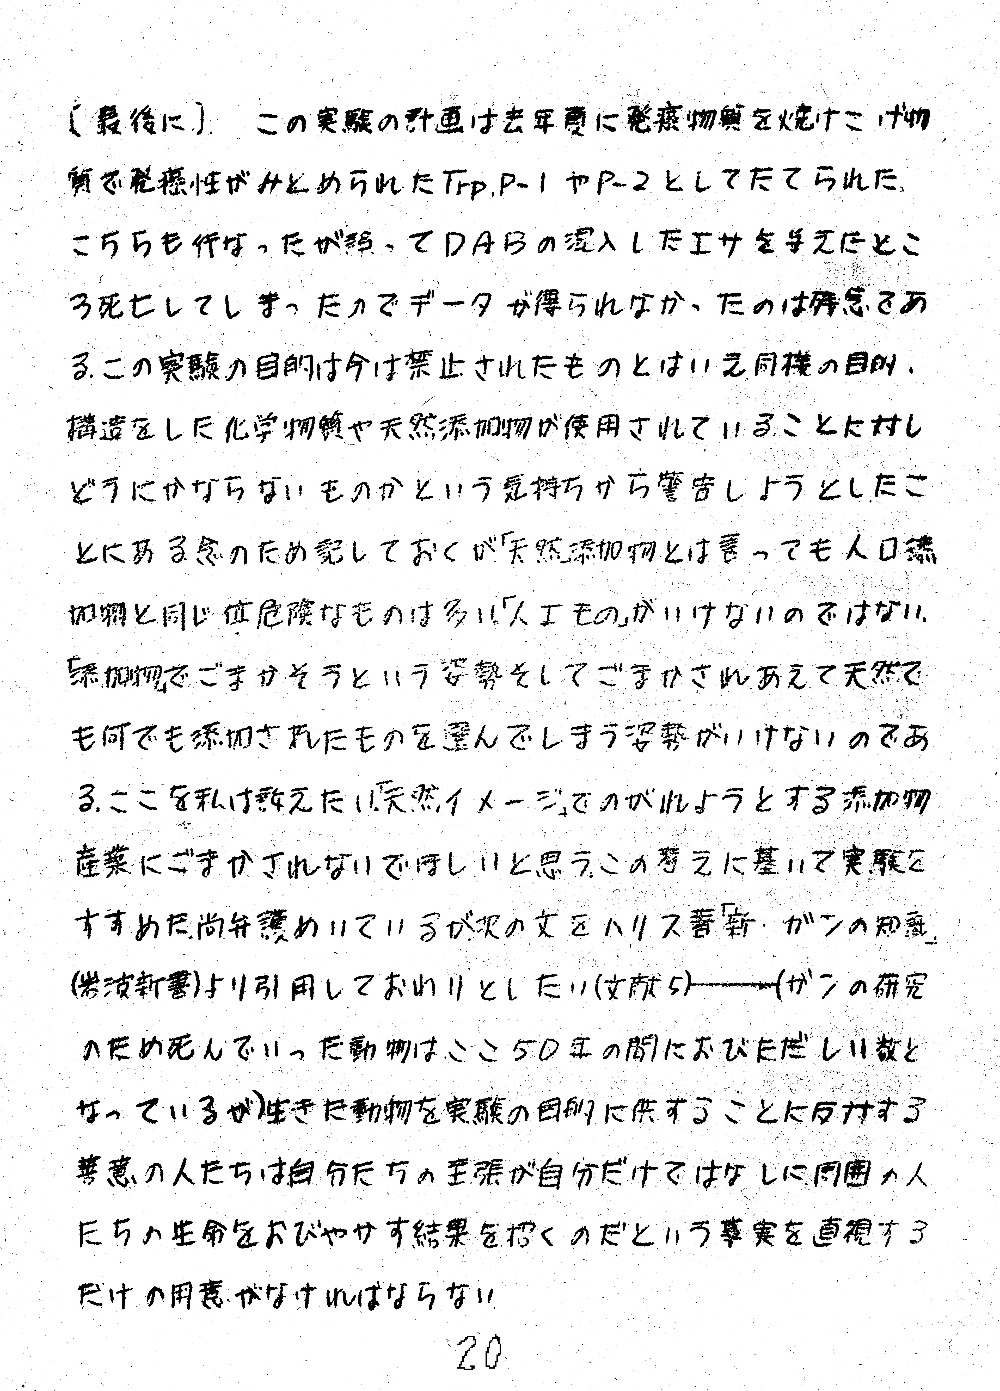 〔最後に〕 この実験の計画は去年夏に発癌物質を焼けこげ物
質で発癌性がみとめられたTrp.P-1やP-2としてたてられた.
こちらも行なったが誤ってDABの混入したエサを与えたとこ
ろ死亡してしまったのでデータが得られなかったのは残念であ
る.この実験の目的は今は禁止されたものとはいえ同様の目的.
構造をした化学物質や天然添加物が使用されていることに対し
どうにかならないものかという気持ちから警告しようとしたこ
とにある念のため記しておくが「天然」添加物とは言っても人口添
加物と同じ位危険なものは多い「人工もの」がいけないのではない.
「添加物」でごまかそうという姿勢そしてごまかされあえて天然で
も何でも添加されたものを選んでしまう姿勢がいけないのであ
る.ここを私は訴えたい.「天然イメージ」でのがれようとする添加物
産業にごまかされないでほしいと思う.この考えに基いて実験を
すすめた.尚弁護めいているが次の文をハリス著「新・ガンの知識」
(岩波新書)より引用しておわりとしたい(文献5)―――(ガンの研究
のため死んでいった動物はここ50年の間におびただしい数と
なっているが)生きた動物を実験の目的に供することに反対する
善意の人たちは自分たちの主張が自分だけではなしに周囲の人
たちの生命をおびやかす結果を招くのだという事実を直視する
だけの用意がなければならない
20